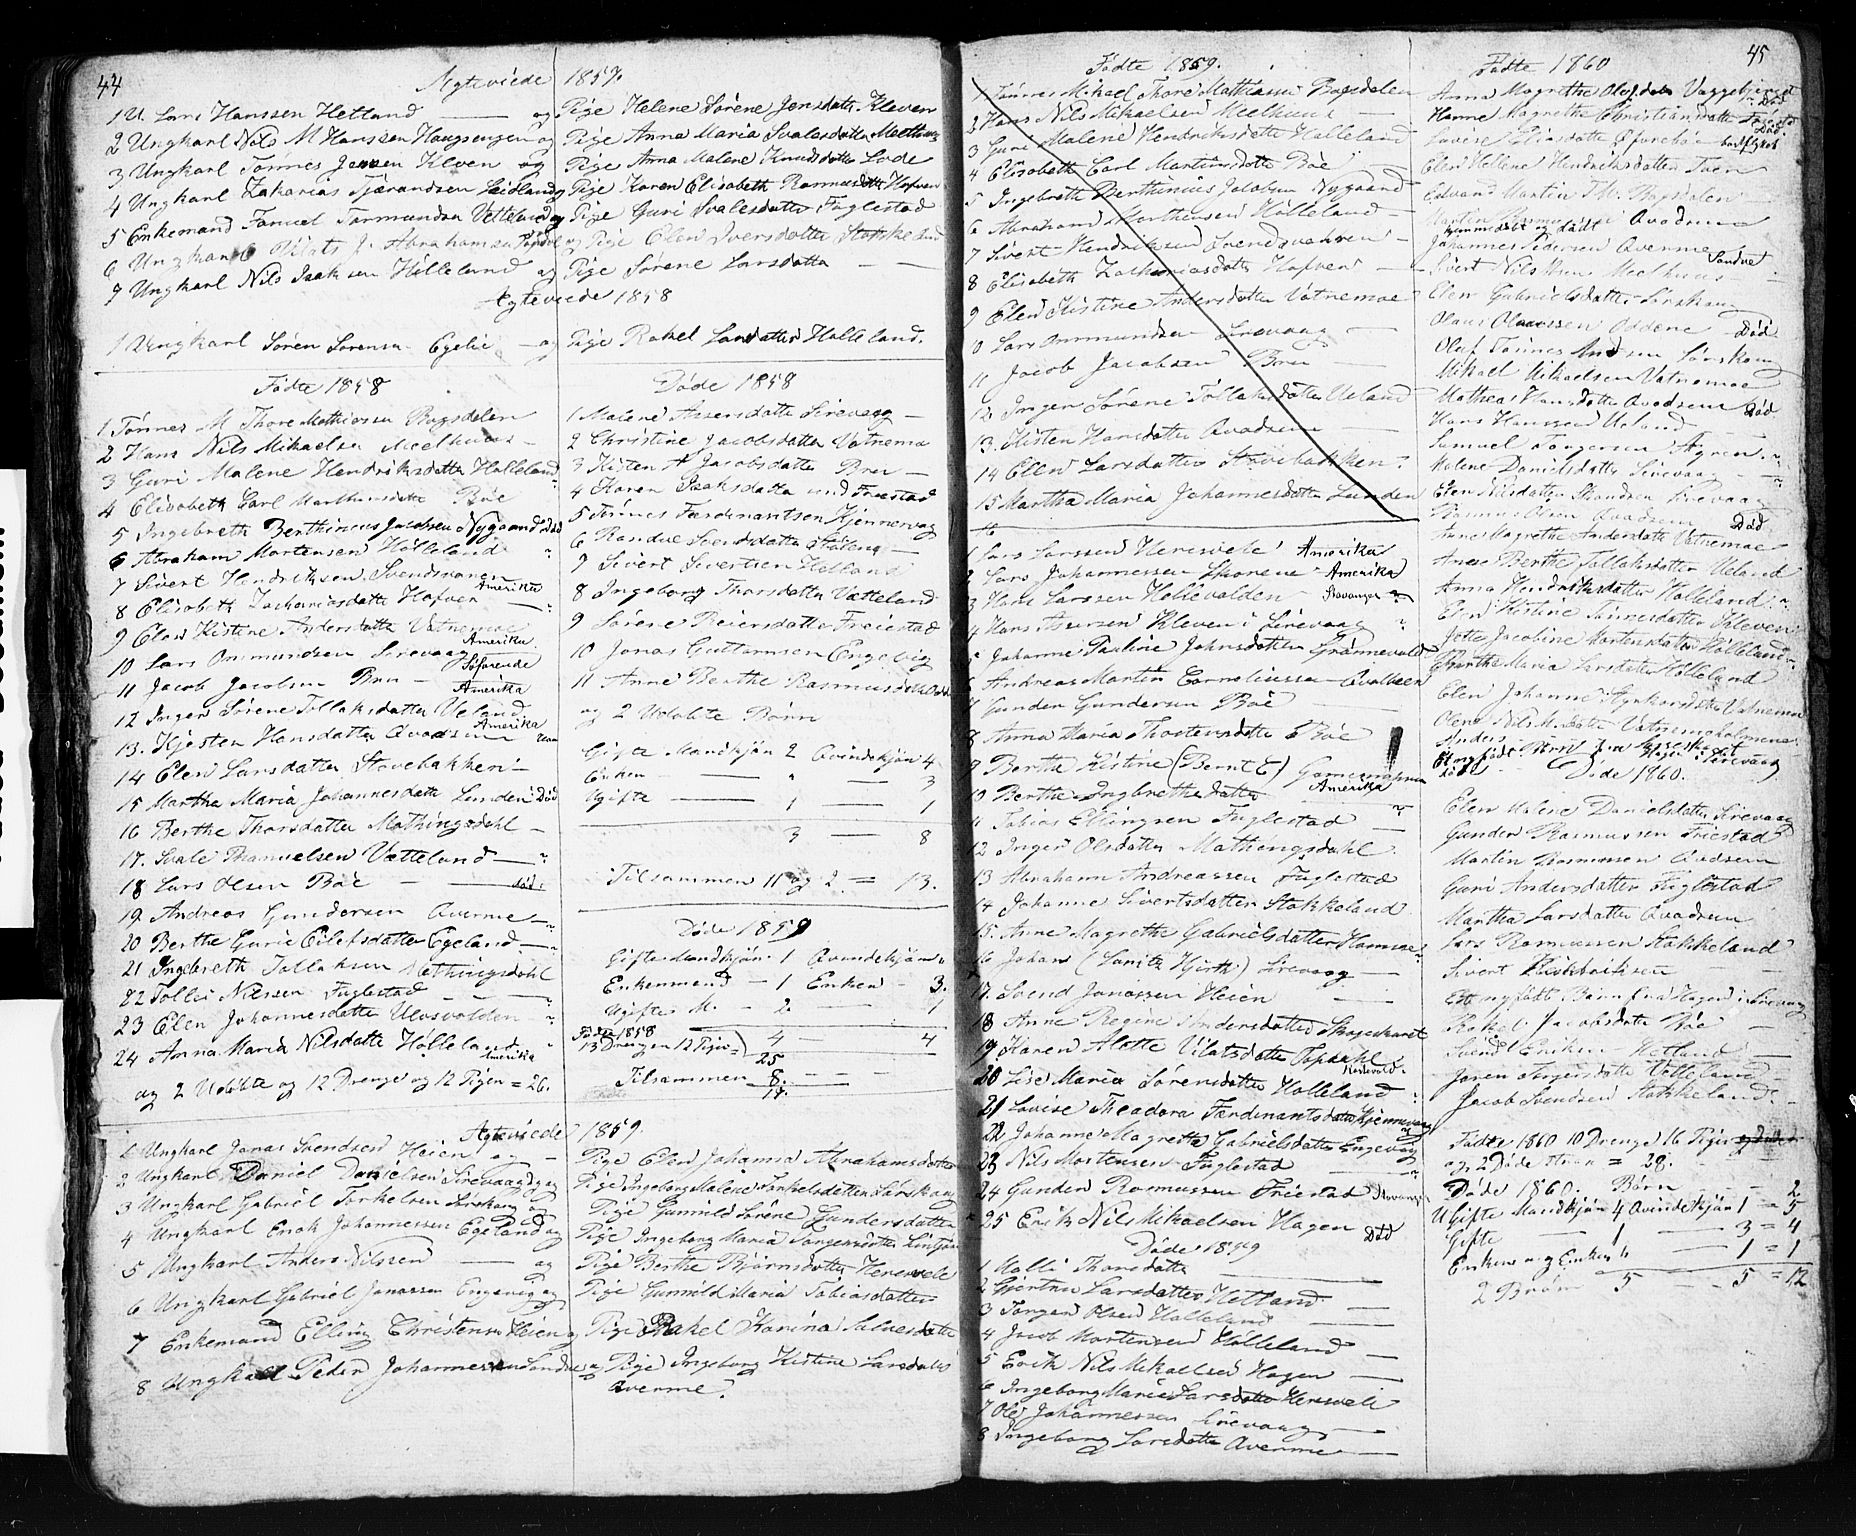 44
Ægteviede 1857.
1 U. Lars Hanssen Hetland — og Pige Helene Sørene Jensdatter Kleven
2 Ungkarl Nils M Hanssen Haugsengen og Pige Anna Maria Svalesdatter
3 Ungkarl Tønnes Jenssen Kleven og Pige Anna Malene Knudsdatter Lode
4 Ungkarl Zakarias Tjærandsen og Pige Karen Elisabeth Rasmusdatter Hofven
5 Enkemand Samuel Tormundsen Vetteland og Pige Guri Svalesdatter Fuglestad
6 Ungkarl Vilats J. Abrahamsen og Pige Elen Iversdatter Stokkeland
7 Ungkarl Nils Isaksen Hølleland og Pige Sørene Larsdatter
Ægteviede 1858
1 Ungkarl Søren Sørensen Egelie — og Pige Rakel Larsdatter Hølleland.
Fødte 1858
1 Tønnes M Thore Mathiassen Bogsdalen
2 Hans Nils Mikaelsen Meelhuus
3 Guri Malene Hendriksdatter Hølleland
4 Elisabeth Carl Marthinsdatter Bøe
5 Ingebreth Berthinius Jacobsen Nygaard Død
6 Abraham Mortensen Hølleland
7 Sivert Hendriksen Svendsvanen
Amerika
8 Elisabeth Zachariasdatter Hofven
9 Elen Kistine Andersdatter Vatnemoe
Amerika
10 Lars Ommundsen Sirevaag
Søfarende
11 Jacob Jacobsen Bru —
Amerika
12 Inger Sørene Tollaksdatter Ueland
Amerika
13. Kjesten Hansdatter Qvadsem
14 Elen Larsdatter Stovebakken
15 Martha Maria Johannesdatter Lunden Død
16 Berthe Thorsdatter Mathingsdahl
17. Svale Thamuelsen Vætteland
18 Lars Olsen Bøe — død.
19. Andreas Gundersen Averme
20 Berthe Gurie Eilefsdatter Egeland
21 Ingebreth Tollaksen Mathingsdahl
22 Tollei Nilssen Fuglestad
23 Elen Johannesdatter Ulvsvolden
24 Anna Maria Nilsdatter Hølleland
Amerika
og 2 Udøbte og 12 Drenge og 12 Piger = 26.
Døde 1858
1 Malene Assersdatter Sirevaag
2 Christine Jacobsdatter Vatnemo
3 Kisten A Jacobsdatter Bru
4 Karen Isaksdatter und Friestad
5 Tønnes Færdinantsen Kjennevaag
6 Randve Svendsdatter
7 Sivert Sivertsen Hetland
8 Ingeborg Thorsdatter Vætteland
9 Sørene Reiersdatter Freistad
10 Jonas Guttormsen Engevig
11 Anne Berthe Rasmusdatter
og 2 Udøbte Børn
Gifte Mandkjøn 2 Qvindekjøn 4
Enken — " — 3
Ugifte — 1 — 1
3 — 8
Tilsammen 11 og 2. = 13.
Døde 1859
Gifte Mandkjøn 1 Qvindekjøn "
Enkemand — 1 Enken — 3.
Ugifte M. — 2 1
4 — 4
Fødte 1858
13 Drenge 12 Piger =
25
Tilsammen 8.
17.
Ægteviede 1859.
1 Ungkarl Jonas Svendsen Heien og — Pige Elen Johanna Abrahamsdatter
2 Ungkarl Daniel Danielsen Sirevaag og Pige Ingeborg Malene Torkelsdatter Sørskaug
3 Ungkarl Gabriel Torkelsen Sørskaug og Pige Gunnild Sørene Gundersdatter
4 Ungkarl Enok Johannessen Egeland og Pige Ingeborg Maria Torgersdatter
5 Ungkarl Anders Nilssen — og Pige Berthe Bjørnsdatter Heresvele
6 Ungkarl Gabriel Jonassen Engevig og Pige Gunnild Maria Tobiasdatter
7 Enkemand Elling Christensen Heien og Pige Rakel Karina Salvesdatter
8 Ungkarl Peder Johannessen og Pige Ingeborg Kistine Larsdatter
Averme.
45
Fødte 1859.
1 Tønnes Mikael Thore Mathiassen Bogsdalen
2 Hans Nils Mikaelsen Meelhuus
3 Guri Malene Hendriksdatter Hølleland
4 Elisabeth Carl Martinsdatter Bøe
5 Ingebreth Berthinius Jacobsen Nygaard
6 Abraham Marthensen Hølleland
7 Sivert Hendriksen Svendsvahnen
8 Elisabeth Zachariasdatter Hofven
9 Elen Kistine Andersdatter Vatnemoe
0 Lars Ommundsen Sirevaag
11 Jacob Jacobsen Bru
12 Inger Sørene Tollaksdatter Ueland
13. Kisten Hansdatter Qvadsem
14 Elen Larsdatter Stovebakken.
15 Martha Maria Johannesdatter Lunden
1 Lars Larssen Heresvele Amerika
2 Lars Johannessen Amerika
3 Hans Larssen Holevolden Stavanger
4 Hans Assersen Kleven i Sirevaag
5 Johanne Pauline Johnsdatter Grønnevold
6 Andreas Martin Corneliussen Qvalbein
7 Gunder Gundersen Bøe
8 Anna Maria Thostensdatter Bøe
9 Berthe Kistine (Bernt E)
Amerika
10 Berthe Ingbrethsdatter
11 Tobias Ellingsen Fuglestad
12 Inger Olsdatter Mathingsdahl
13 Abraham Andreassen Fuglestad
14 Johanne Sivertsdatter Stokkeland
15. Anne Magrethe Gabrielsdatter
16 Johan (Lauritz Hjorth) Sirevaag
17. Svend Jonassen Heien
18 Anne Regine Andersdatter
19 Karen Alette Vilatsdatter Topdahl
20 Lise Maria Sørensdatter Hølleland
21 Lovise Theadora Færdinantsdatter Kjennevaag
22 Johanne Magrethe Gabrielsdatter Engevaag
23 Nils Mortensen Fuglestad
24 Gunder Rasmussen Friestad Stavanger
25 Erik Nils Mikaelsen Hagen Død
Døde 1859
1 Malli Thorsdatter
2 Gjertru Larsdatter Hetland
3 Torger Olsen Hølleland
4 Jacob Mortensen Hølleland
5 Erik Nils Mikaelsen Hagen
6 Ingeborg Maria Larsdatter Heresvele
7 Ole Johannessen Sirevaag
8 Ingeborg Larsdatter Averme
Fødte 1860
Anna Magrethe Olefsdatter
Død
Hanne Magrethe Christiansdatter
Død
Lovise bortflyttet
Elen Helene Hendriksdatter Tuen
Edvard Martin Th. Bogsdalen
Martin Rasmussen Qvadsem
Hjemmedøbt og død
Johannes Pedersen Averme
Sivert Nils Meelhuus
Elen Gabrielsdatter Sørskaug
Olaus Olaussen Oddene Død
Oluf Tønnes Andsen Sørskaug
Mikael Mikaelsen Vatnemoe
Mathea Hansdatter Qvadsem Død
Hans Hanssen Ueland
Samuel Torgersen
Malene Danielsdatter Sirevaag
Elen Nilsdatter Sirevaag
Rasmus Olsen Qvadsem Død
Anne Magrethe Andersdatter Vatnemoe
Anne Berthe Tollaksdatter Ueland
Anna Hendriksdatter Hølleland
Elen Kistine Tønnesdatter Kleven
Jacobine Mortensdatter Hølleland
Berthe Maria Larsdatter Hølleland
Elen Johanne Vatnemoe
Olene Nils M. datter
Anders
Et ugfødt Barn fra Hagen i Sirevaag
Døde 1860.
Elen Malene Danielsdatter Sirevaag
Gunder Rasmussen Friestad
Martin Rasmussen Qvadsem
Guri Andersdatter Fuglestad
Martha Larsdatter Qvadsem
Lars Rasmussen Stokkeland
Sivert
Et ugfødt Barn fra Hagen i Sirevaag
Rakel Jacobsdatter Bøe
Svend Eriksen Hetland
Joren Torgersdatter Vetteland
Jacob Svendsen Stokkeland
Fødte 1860 10 Drenge 16 Piger
og 2 Døde = 28.
Døde 1860. Børn — 2
Ugifte Mandkjøn 4 Qvindekjøn 1 = 5
Gifte — 1 — 3 = 4
Enkens og Enken " — 1 = 1
2 Børn 5 — 5 = 12